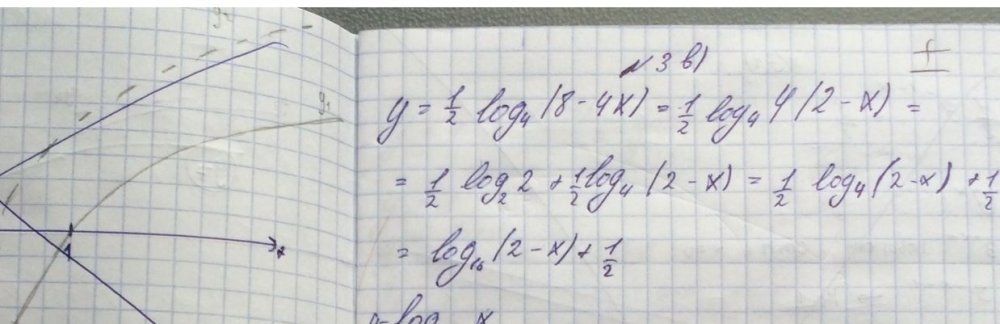 y₁
1
x
N3 в)
y = 1/2 log₄(8 - 4x) = 1/2 log₄ 4(2 - x) =
= 1/2 log₂ 2 + 1/2 log₄(2 - x) = 1/2 log₄(2 - x) + 1/2
= log₁₆(2 - x) + 1/2